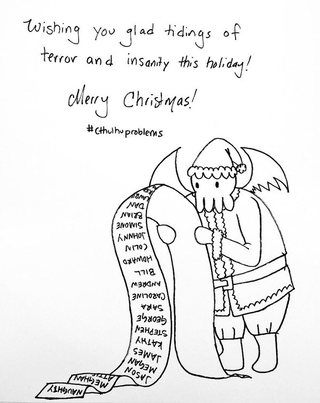 Wishing you glad tidings of
terror and insanity this holiday!
Merry Christmas!
#cthulhuproblems
NAUGHTY
MEGHAN
JASON
MEGAN
JAMES
KATHY
STEPHEN
GEORGE
SARA
CAROLINE
ANDREW
BILL
HOWARD
COLIN
JOHNNY
SIMONE
BRIAN
DAN